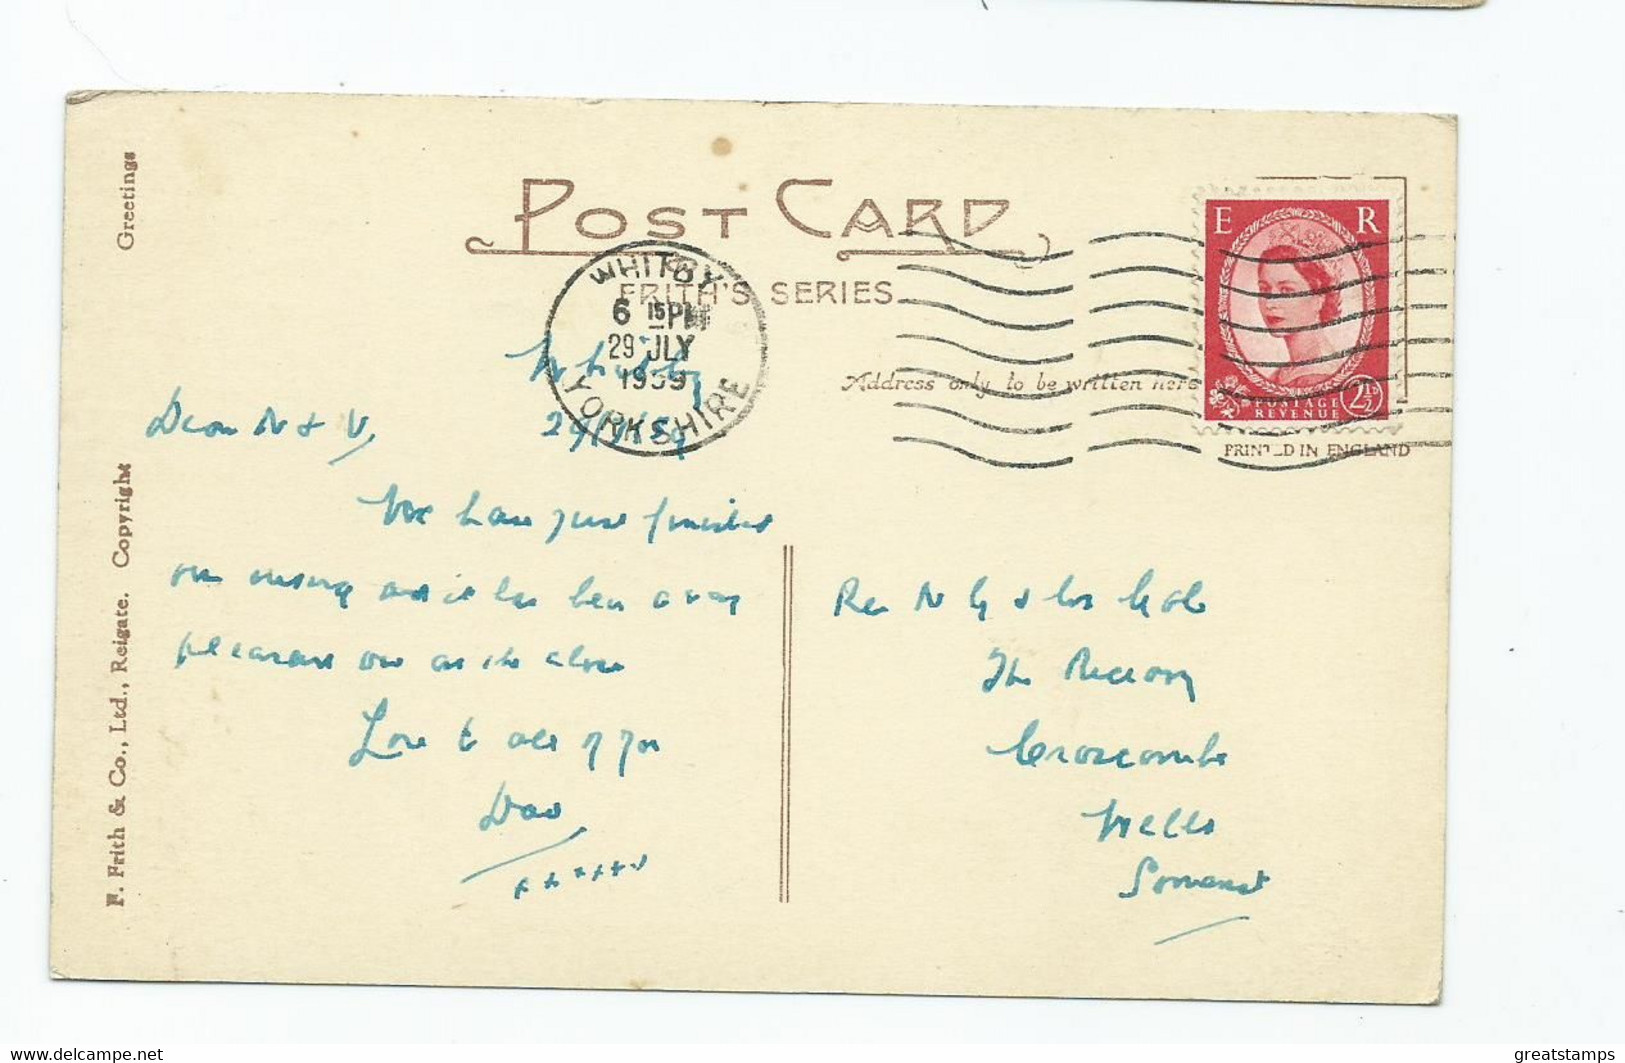 Greetings
POST CARD
FRITH'S SERIES
WHITBY
6 15 PM
29 JLY
1959
YORKSHIRE
E R
POSTAGE
REVENUE
2½D
Address only to be written here
PRINTED IN ENGLAND
F. Frith & Co., Ltd., Reigate. Copyright
Whitby
29/7/59
Dear N & V,
We have just finished
our and it has been a very
pleasant one
Love to all of you
xxxxxx
Rev N G & Mrs
The Rectory
Croscombe
Wells
Somerset
greatstamps
www.delcampe.net